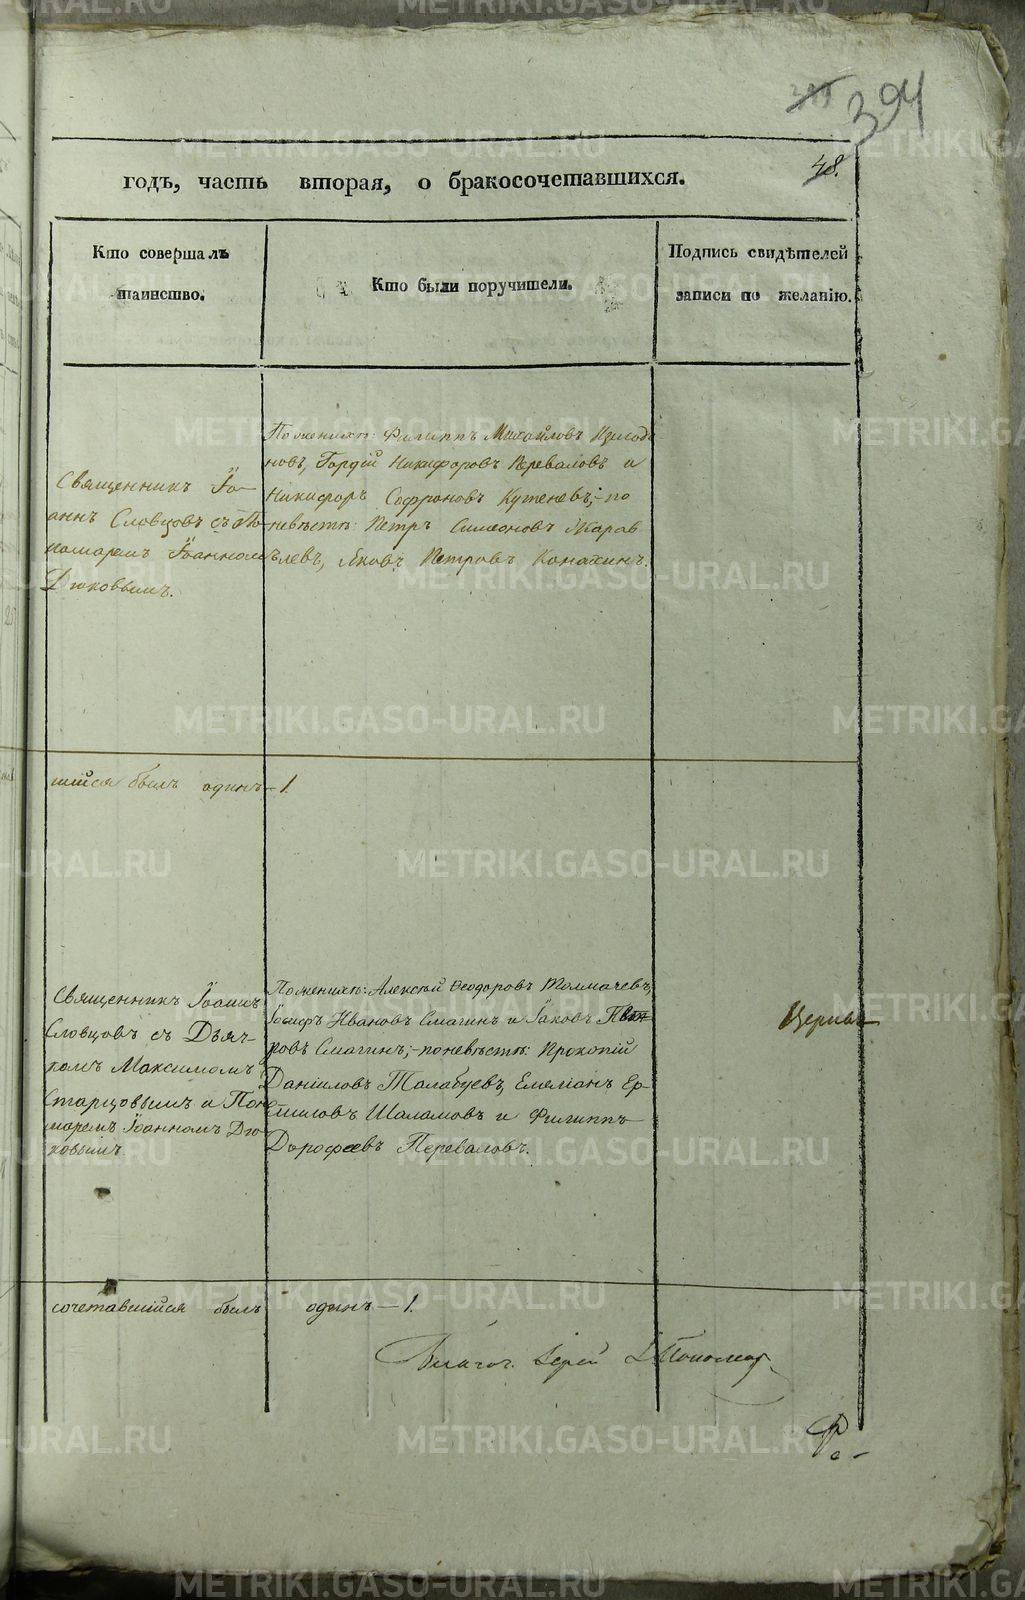 394
48.
годъ, часть вторая, о бракосочетавшихся.
Кто совершалъ
таинство.
Кто были поручители.
Подпись свидѣтелей
записи по желанію.
Священникъ Іо-
аннъ Словцовъ съ По-
номаремъ Іоанномъ
Дюковымъ.
По женихѣ: Филиппъ Михайловъ
новъ, Гордѣй Никифоровъ Переваловъ и
Никифоръ Софроновъ Кутеневъ; по
невѣстѣ: Петръ Симеоновъ Журав
левъ, Яковъ Петровъ Конахинъ.
шійся былъ одинъ — 1.
Священникъ Іоаннъ
Словцовъ съ Дьяч-
комъ Максимомъ
Старцовымъ и Поно
маремъ Іоанномъ Дю-
ковымъ
По женихѣ: Алексѣй Ѳеодоровъ Толмачевъ,
Іосифъ Ивановъ Смагинъ и Іаковъ Пет
ровъ Смагинъ; по невѣстѣ: Прокопій
Даніиловъ Талабуевъ, Емеліанъ Ер-
миловъ Шаламовъ и Филиппъ
Дорофеевъ Переваловъ.
сочетавшійся былъ одинъ — 1.
Благоч. Іерей Пономар
METRIKI.GASO-URAL.RU